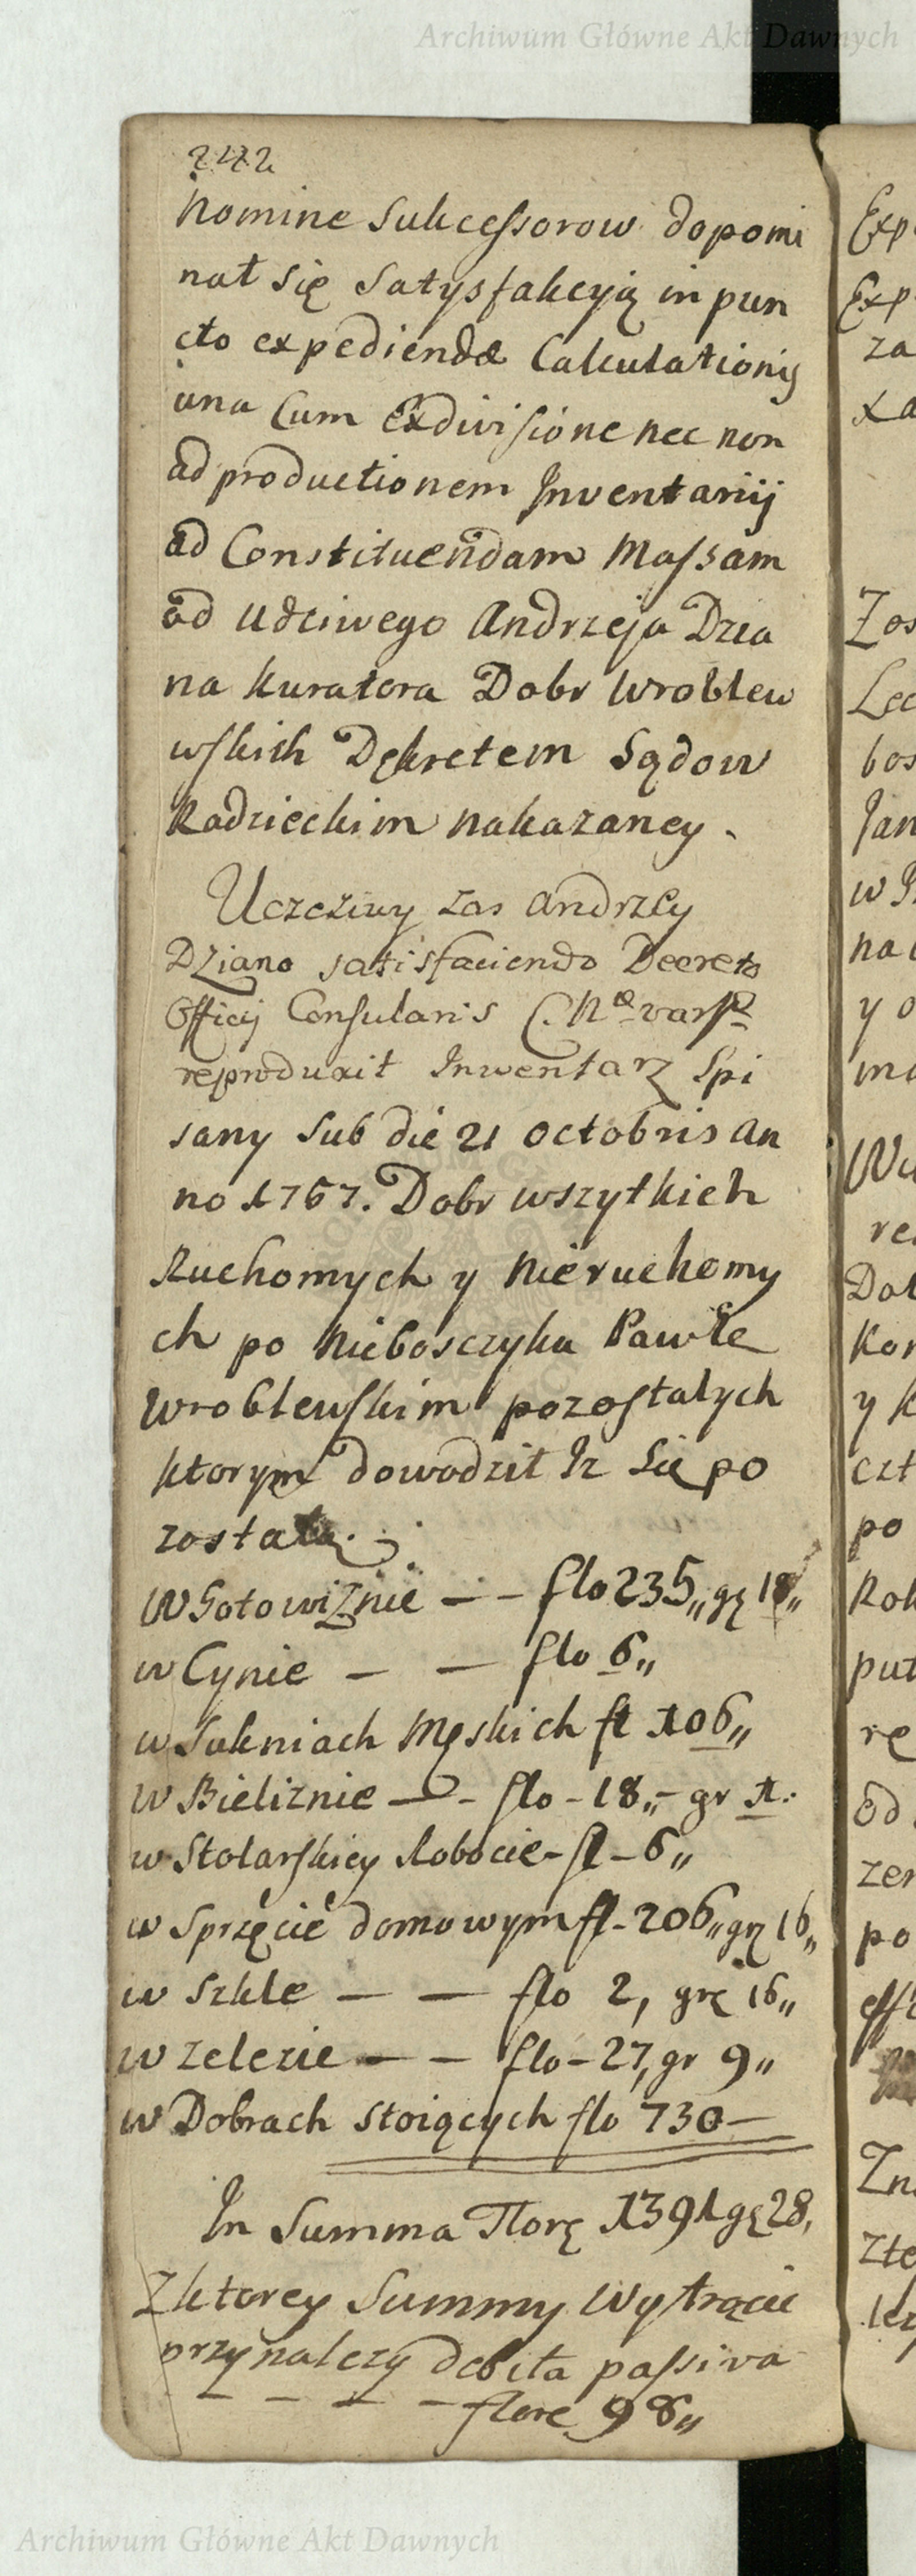 Archiwum Główne Akt Dawnych
242
Nomine Sukcessorow dopomi
nał się Satysfakcyią in pun
cto expediendæ Calculationis
una Cum Exdivisione nec non
ad productionem Inventarij
ad Constituendam Massam
od Uczciwego Andrzeja Dzia
na kuratora Dobr Wroblew
wskich Dekretem Sądow
Radzieckim nakazaney.
Uczciwy zas Andrzey
Dziano satisfaciendo Decreto
Officij Consularis
reproduxit Inwentarz Spi
sany Sub die 21 octobris an
no 1767. Dobr wszytkich
Ruchomych y Nieruchomy
ch po Nieboszczyku Pawle
Wroblewskim pozostałych
ktorym dowodził Iz Się po
zostało.
W Gotowiznie — – flo 235„ gę 18„
w Cynie — — flo 6„
w Sukniach Męskich fl 106„
W Bieliznie — - flo - 18„- gr 1.
w Stolarskiey Robocie - fl - 6„
w Sprzęcie domowym fl - 206„ grę 16„
w Szkle — — flo 2, grę 16„
w zelezie — – flo - 27, gr 9„
w Dobrach stoiących flo 730 —
In Summa Florę 1391 gę 28,
Z ktorey Summy Wytrącic
przynalezy debita passiva
– – – – flore 98„
Exp
Exp
za
xa
Zos
Lec
bos
Jan
w
na
y o
ma
re
Dob
Kon
y k
czt
po
Rok
put
rę
od
zen
po
Zn
Zte
Archiwum Główne Akt Dawnych